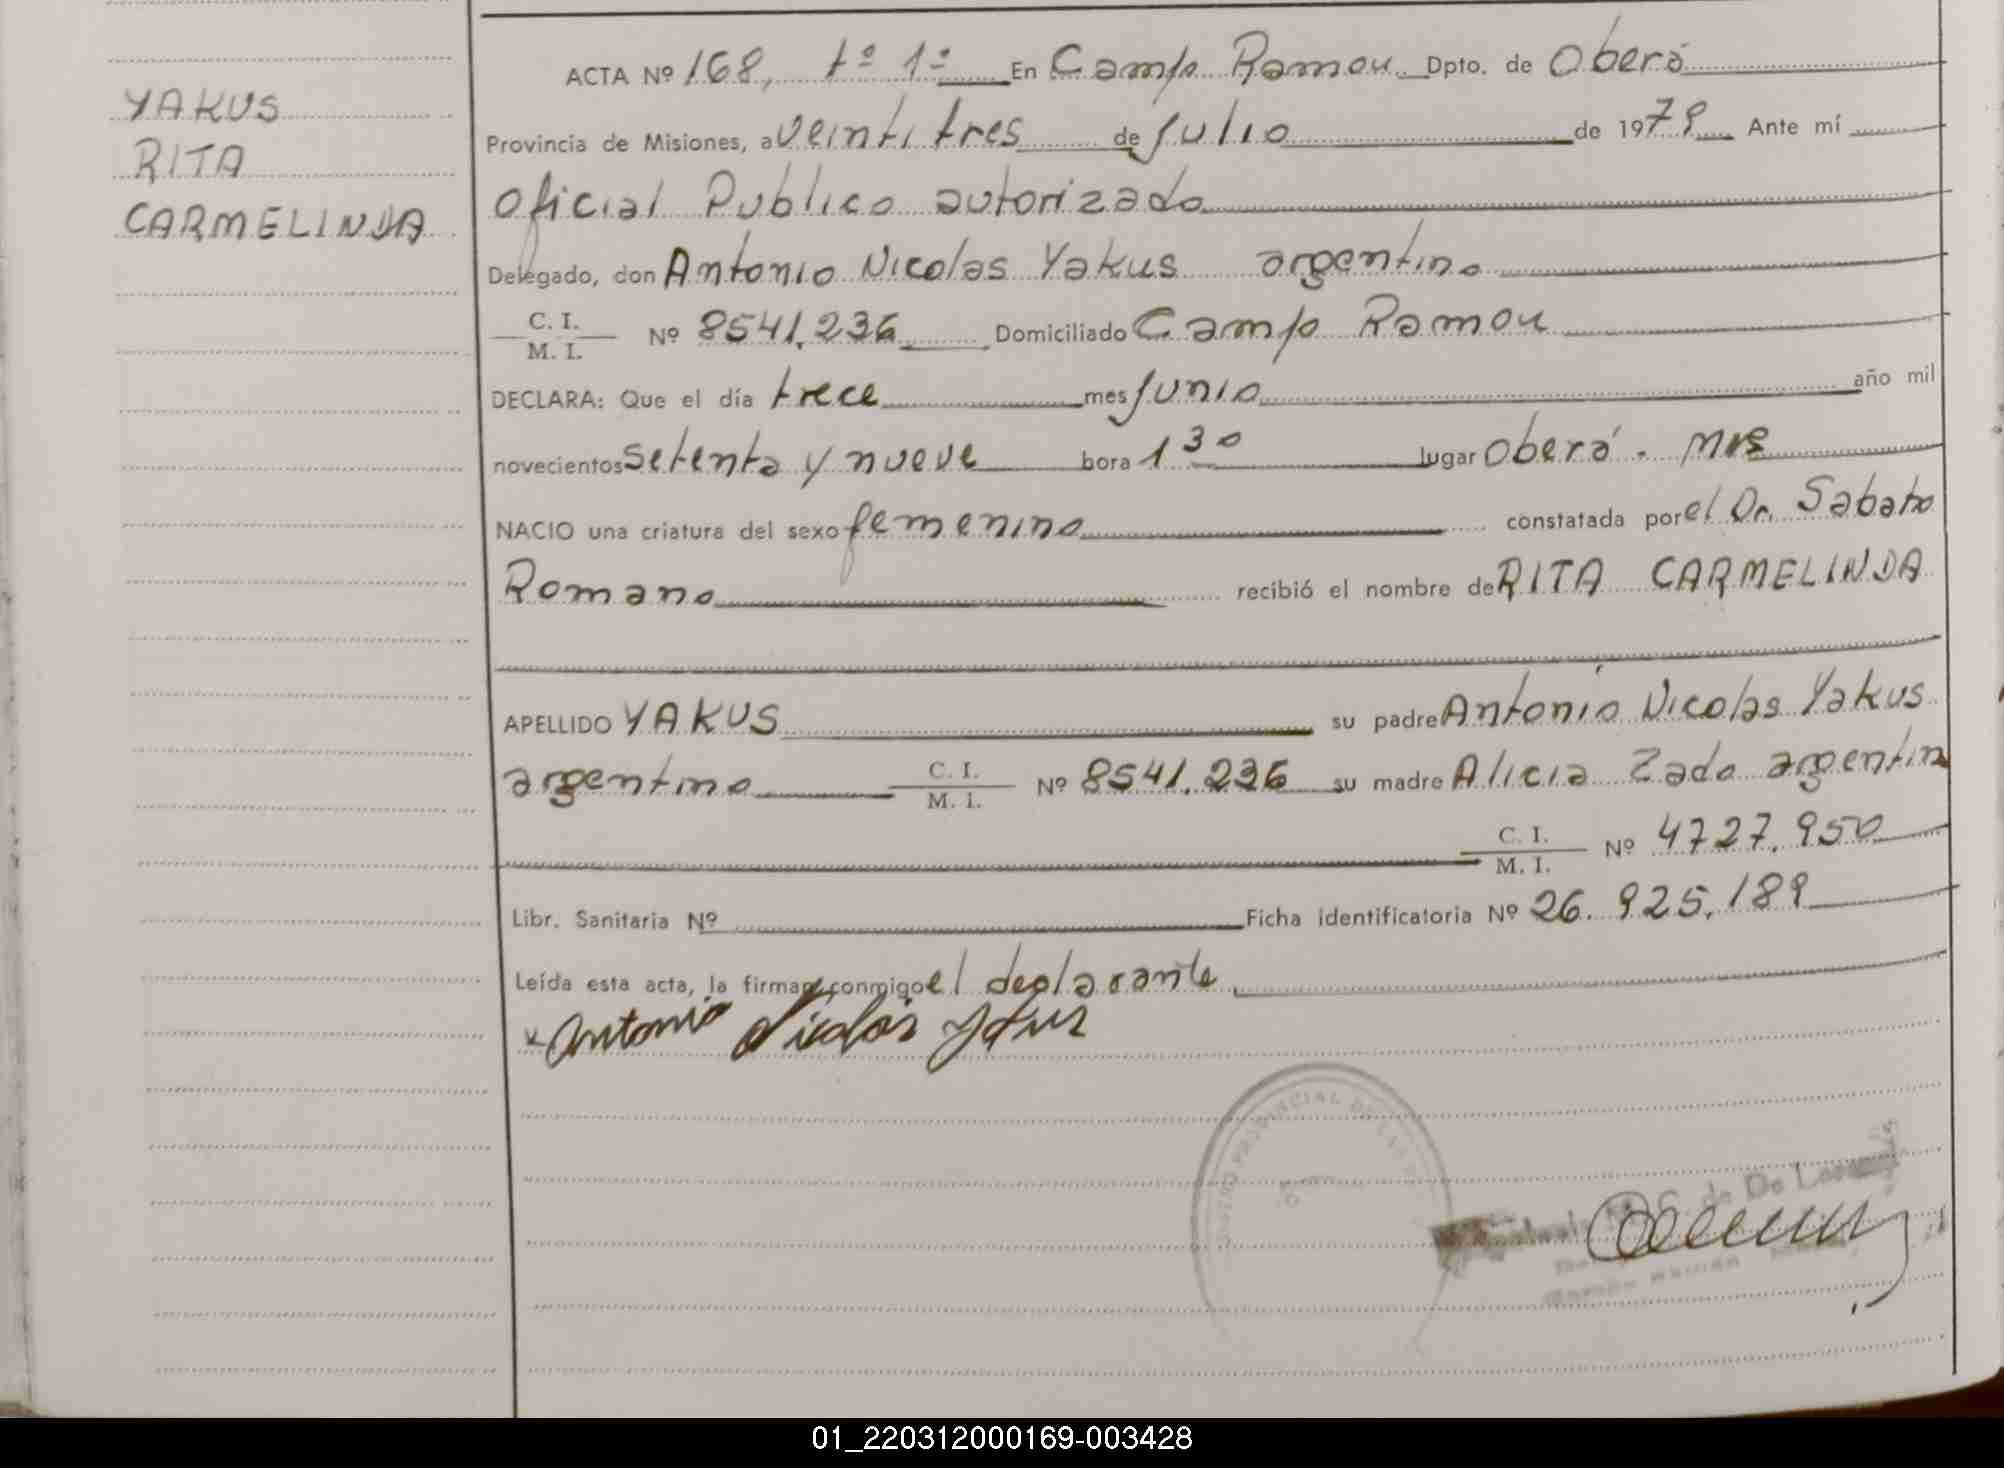 YAKUS
RITA
CARMELINDA
ACTA Nº 168, tº 1º En Campo Ramou Dpto. de Oberá
Provincia de Misiones, a veintitres de Julio de 1979 Ante mí
Oficial Publico autorizado
Delegado, don Antonio Nicolas Yakus argentino
C. I.
M. I. Nº 8541.236 Domiciliado Campo Ramou
DECLARA: Que el día trece mes Junio año mil
novecientos setenta y nueve hora 1 30 lugar Oberá. Mns
NACIO una criatura del sexo femenino constatada por el Dr. Sabato
Romano recibió el nombre de RITA CARMELINDA
APELLIDO YAKUS su padre Antonio Nicolas Yakus
argentino C. I.
M. I. Nº 8541.236 su madre Alicia Zado argentin
C. I.
M. I. Nº 4727.950
Libr. Sanitaria Nº Ficha identificatoria Nº 26.925.189
Leída esta acta, la firman conmigo el deglarante
x Antonio Nicolas Yakus
PROVINCIAL DE LAS
de De
01_220312000169-003428